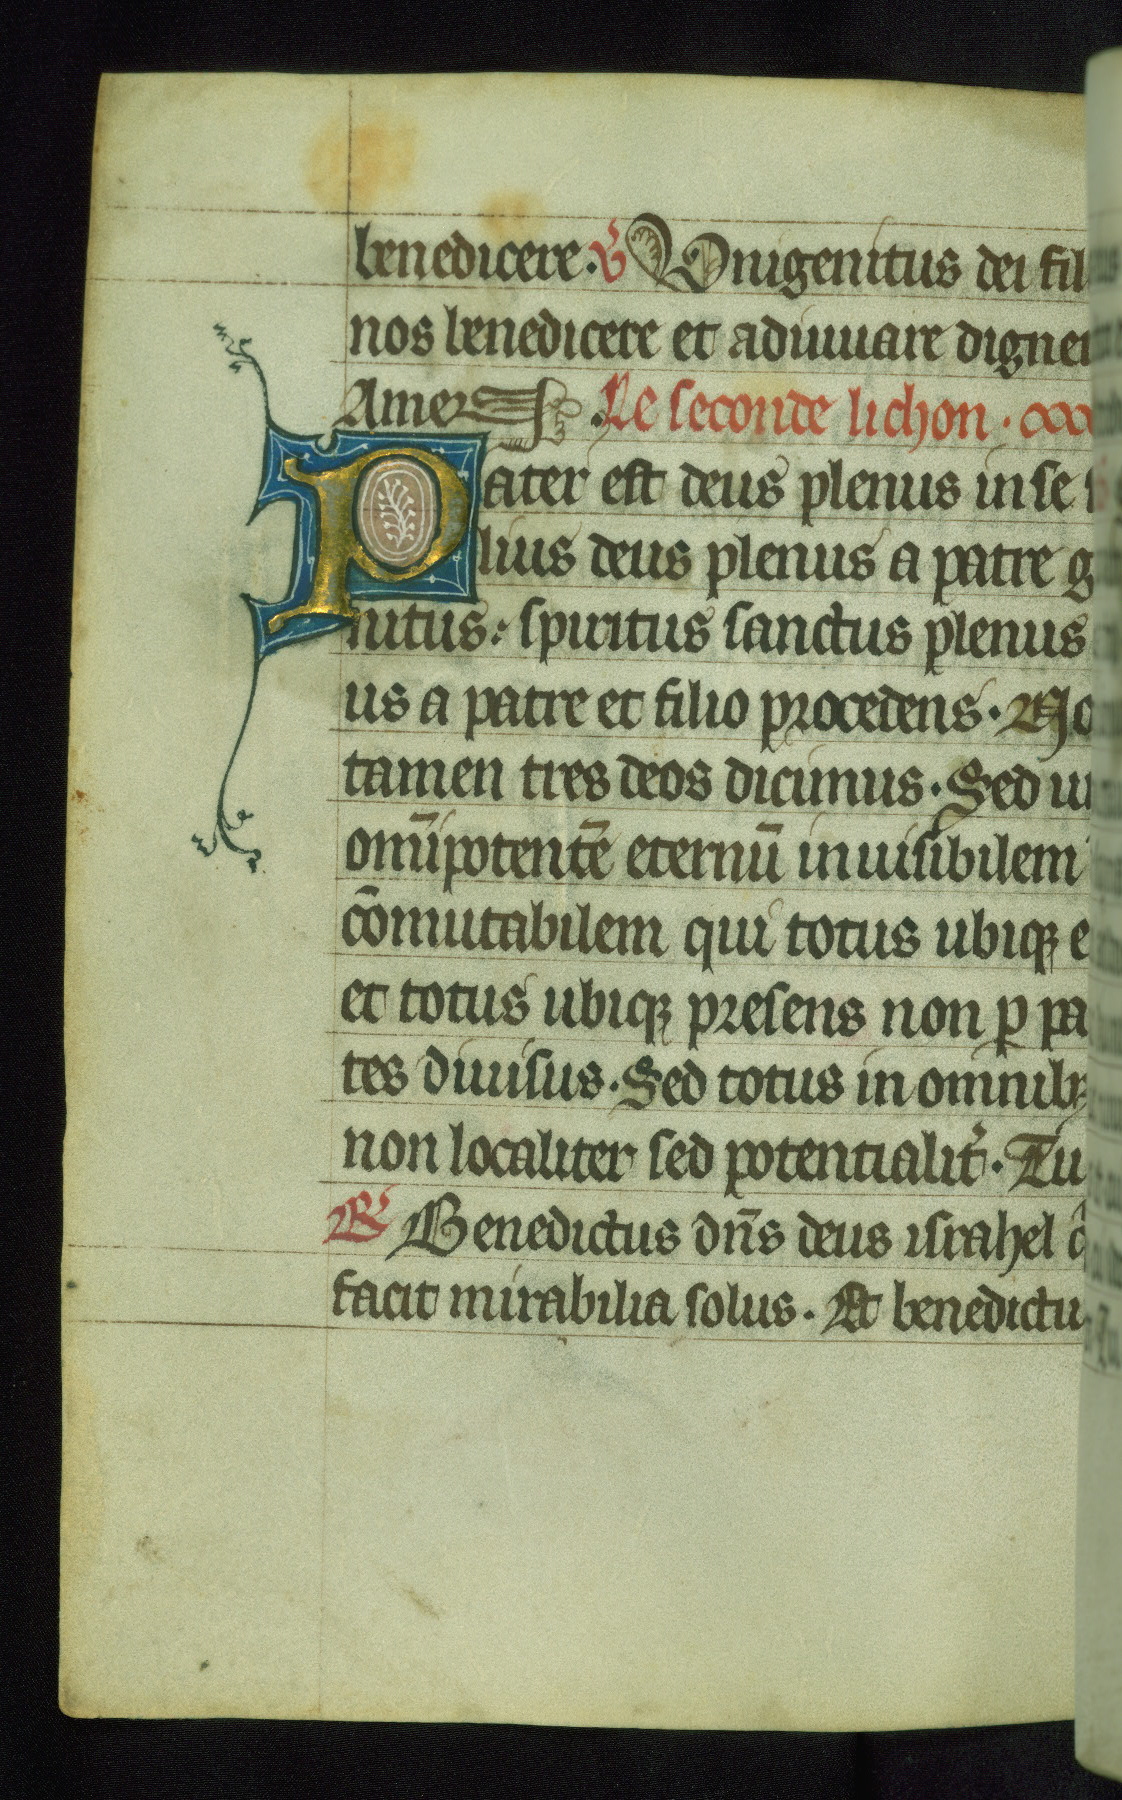 benedicere. V̉ Unigenitus dei fil
nos benedicere et adiuuare digne
Amen. Le seconde lichon.
Pater est deus plenus in se
lius deus plenus a patre g
nitus: spiritus sanctus plenus
us a patre et filio procedens. No
tamen tres deos dicimus. Sed u
om̄ipotentē eternū inuisibilem
cōmutabilem qui totus ubiqꝫ e
et totus ubiqꝫ presens non ꝑ pa
tes diuisus. Sed totus in omnibꝫ
non localiter sed potentialit̉. Tu
℟ Benedictus dn̄s deus israhel q̄
facit mirabilia solus. Et benedictu